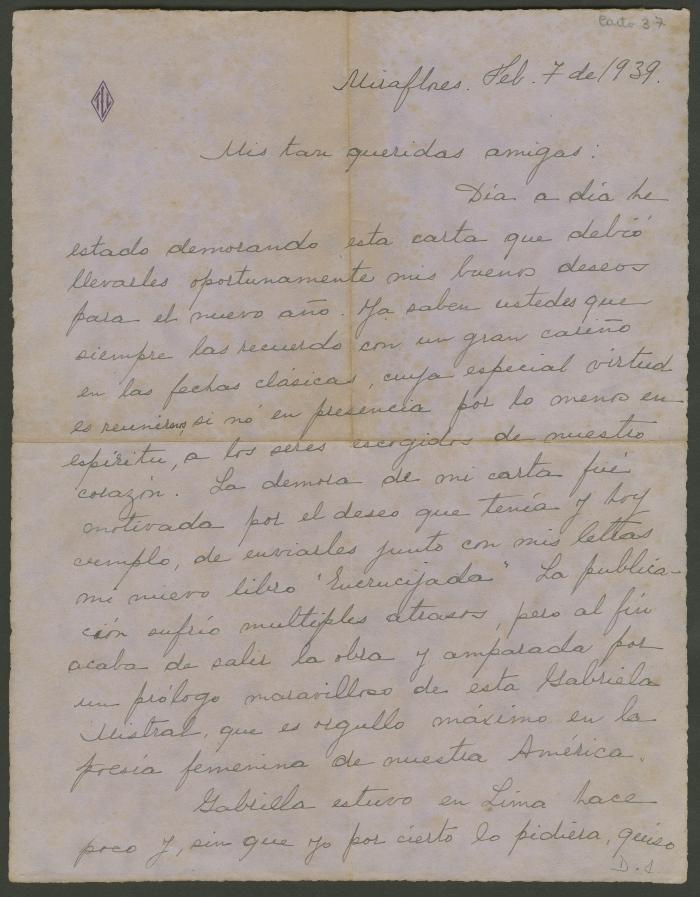 Carta 37
Miraflores. Feb. 7 de 1939.
Mis tan queridas amigas:
Día a día he
estado demorando esta carta que debió
llevarles oportunamente mis buenos deseos
para el nuevo año. Ya saben ustedes que
siempre las recuerdo con un gran cariño
en las fechas clásicas, cuya especial virtud
es reunirnos, si nó en presencia por lo menos en
espíritu, a los seres escogidos de nuestro
corazón. La demora de mi carta fué
motivada por el deseo que tenía y hoy
cumplo, de enviarles junto con mis letras
mi nuevo libro "Encrucijada" La publica-
ción sufrío multiples atrasos, pero al fin
acaba de salir la obra y amparada por
un prólogo maravilloso de esta Gabriela
Mistral, que es orgullo máximo en la
poesía femenina de nuestra América.
Gabriela estuvo en Lima hace
poco y, sin que yo por cierto lo pidiera, quiso